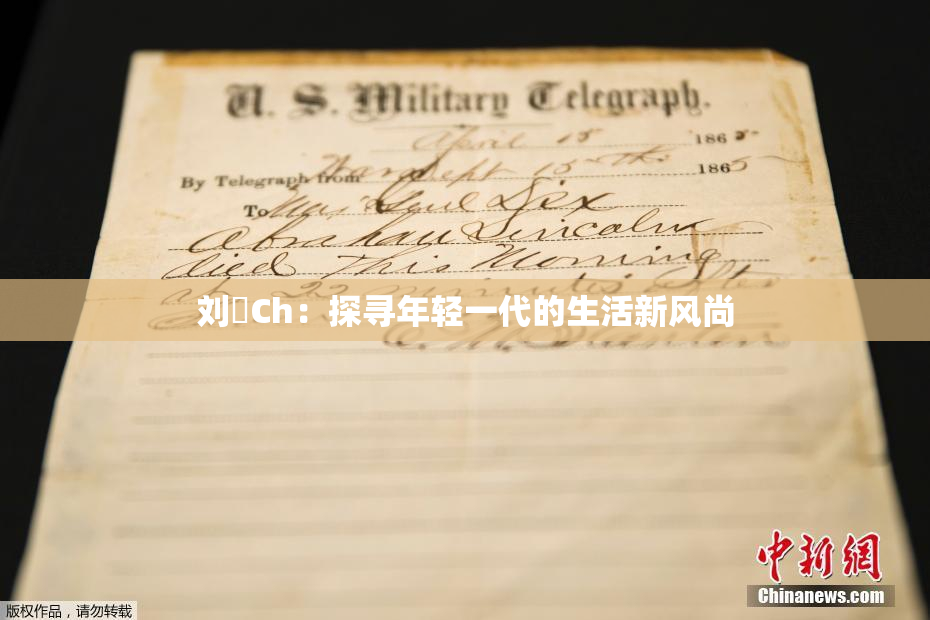 U. S. Military Telegraph.
April 15 1865
By Telegraph from War Dept 15th 1865
To Maj Genl Dix
Abraham Lincoln
died This Morning
at 22 minutes after
刘Ch：探寻年轻一代的生活新风尚
中新网
Chinanews.com
版权作品，请勿转载